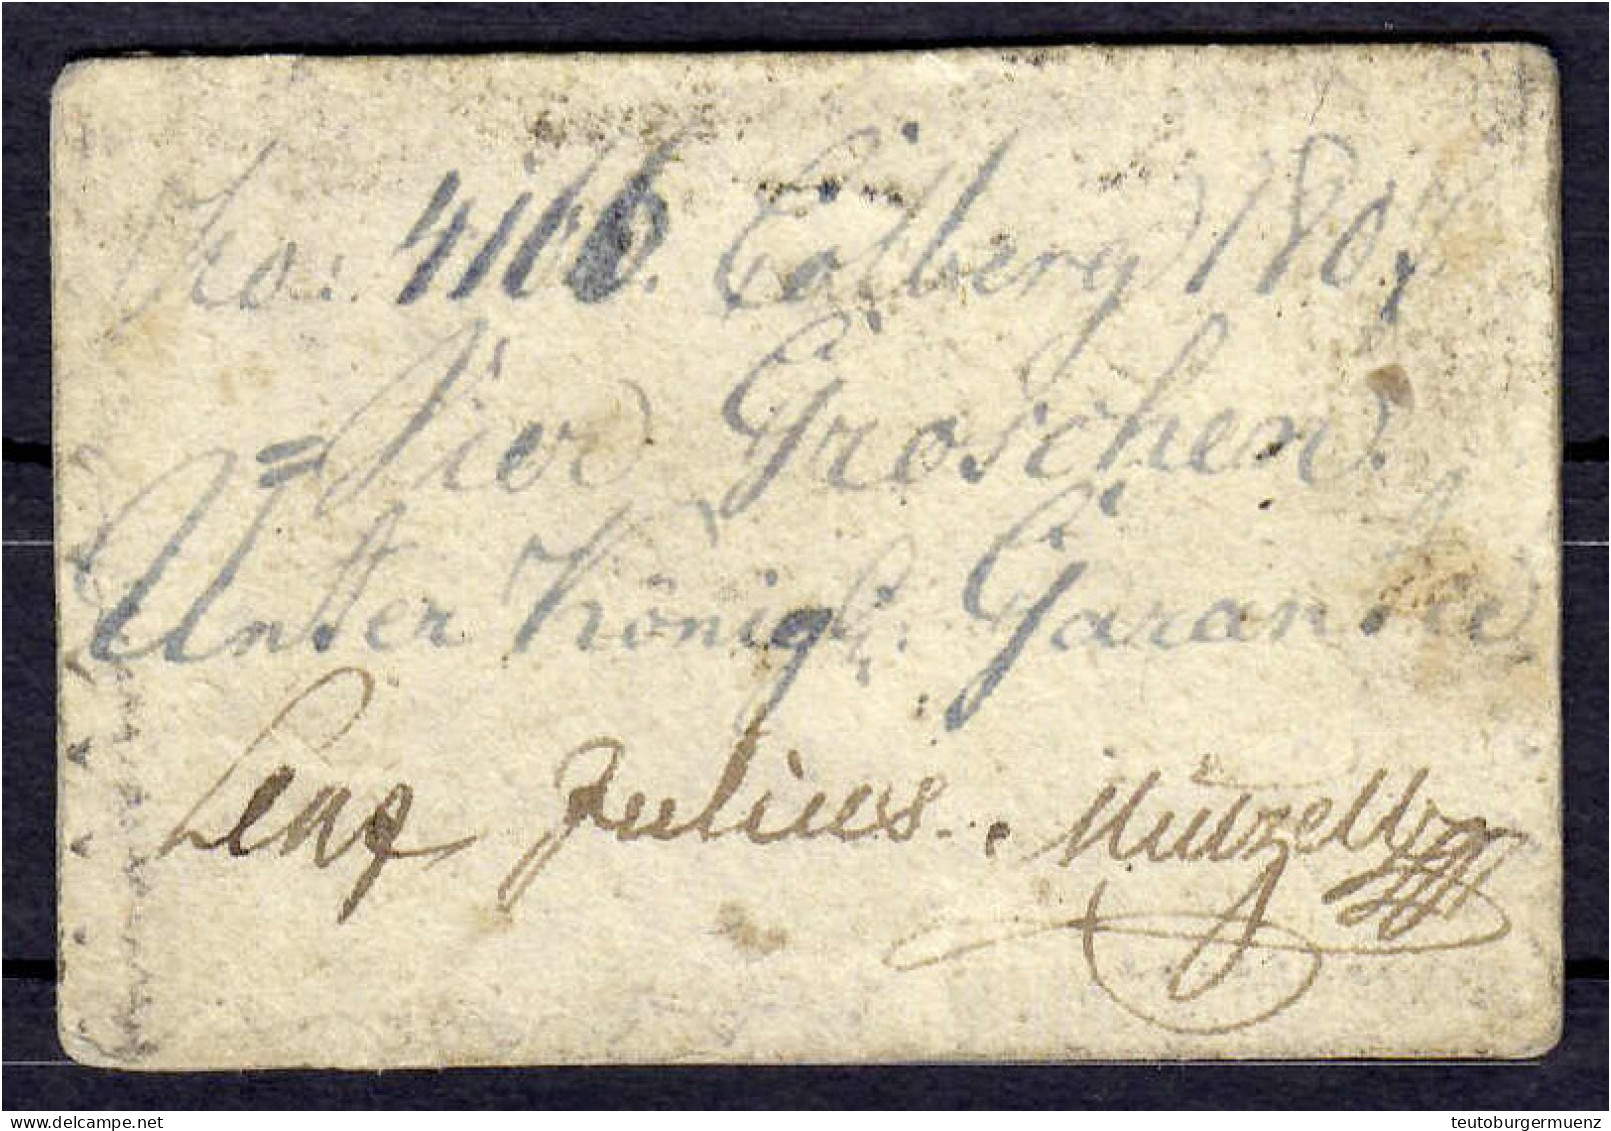 No: 4166. Colberg 1807
Vier Groschen.
Unter Königl. Garantie
Lenz Julius. Mutzell
delcampe.net
teutoburgermuenz